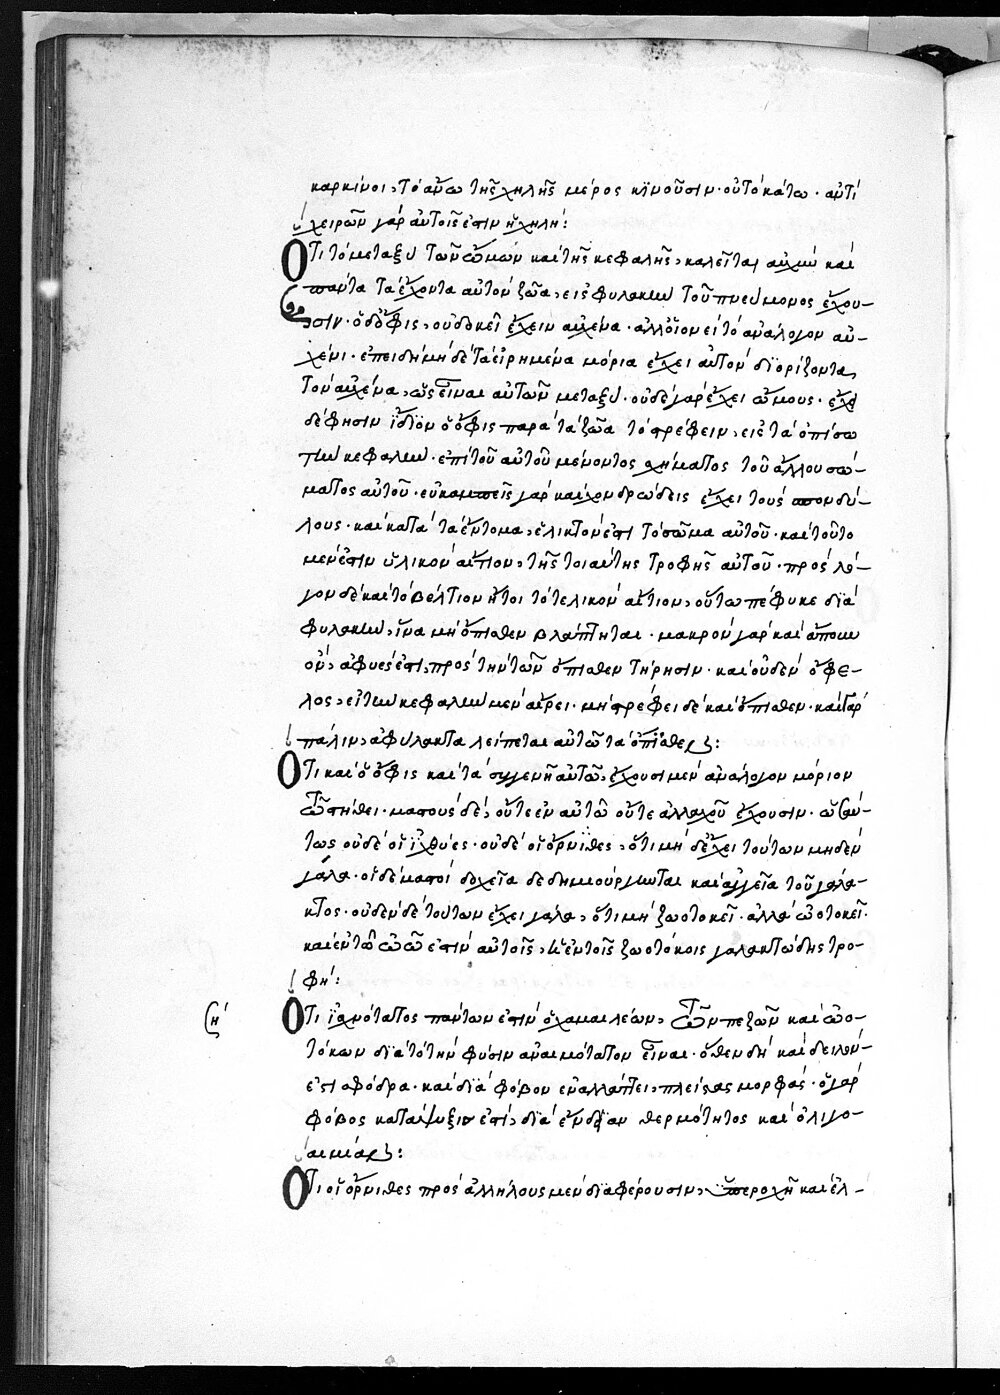 καρκίνοι, τὸ ἄνω τῆς χηλῆς μέρος κϊνοῦσιν· οὐ τὸ κάτω· ἀντὶ
χειρῶν γάρ αὐτοῖς ἐστιν ἡ χηλή:
Ὅτι τὸ μεταξὺ τῶν ὤμων καὶ τῆς κεφαλῆς, καλεῖται αὐχὴν καὶ
πάντα τὰ ἔχοντα αὐτὸν ζῶα, εἰς φυλακὴν τοῦ πνεύμονος ἔχου-
σιν· ὁ δὲ ὄφις, οὐ δοκεῖ ἔχειν αὐχένα· ἀλλ' οἷον εἰ τὸ ἀνάλογον αὐ-
χένι· ἐπειδὴ μὴ δὲ τὰ εἰρημένα μόρια ἔχει αὐτὸν διορίζοντα,
τὸν αὐχένα, ὡς εἶναι αὐτῶν μεταξύ· οὐδὲ γὰρ ἔχει ὤμους· ἔχειν
δέ φησιν ἴδϊον ὁ ὄφις παρὰ τὰ ζῶα τὸ στρέφειν, εἰς τὰ ὀπίσω
τὴν κεφαλὴν· ἐπὶ τοῦ αὐτοῦ μένοντος σχήματος τοῦ ἄλλου σώ-
ματος αὐτοῦ· εὐκαμπεῖς γὰρ καὶ χονδρώδεις ἔχει τοὺς σπονδύ-
λους· καὶ κατὰ τὰ ἔντομα, ἑλικτόν ἐστι τὸ σῶμα αὐτοῦ· καὶ τοῦτο
μέν ἐστιν ὑλικὸν αἴτιον, τῆς τοιαύτης τροφῆς αὐτοῦ· πρὸς λό-
γον δὲ καὶ τὸ βέλτιον ἤτοι τὸ τελικὸν αἴτιον, οὕτω πέφυκε διὰ
φυλακὴν, ἵνα μὴ ὄπισθεν βλάπτηται· μακρὸν γὰρ καὶ ἄπουν
ὂν, ἀφυές ἐστι, πρὸς τὴν τῶν ὄπισθεν τήρησιν· καὶ οὐδὲν ὄφε-
λος, εἰ τὴν κεφαλὴν μὲν αἴρει· μὴ στρέφει δὲ καὶ ὄπισθεν· καὶ γὰρ
πάλιν, ἀφύλακτα λείπεται αὐτῶ τὰ ὄπισθεν:
Ὅτι καὶ ὁ ὄφις καὶ τὰ συγγενῆ αὐτῶ, ἔχουσι μὲν ἀνάλογον μόριον
τῶ στήθει· μαστοὺς δέ, οὔτε ἐν αὐτῶ οὔτε ἀλλαχοῦ ἔχουσιν· ὡσαύ-
τως οὐδὲ οἱ ἰχθύες· οὐδὲ οἱ ὄρνιθες, ὅτι μὴ δὲ ἔχει τούτων μηδὲν
γάλα· οἱ δὲ μαστοὶ δοχεῖα δεδημιούργηνται καὶ ἀγγεῖα τοῦ γάλα-
κτος· οὐδὲν δὲ τούτων ἔχει γάλα, ὅτι μὴ ζωοτοκεῖ· ἀλλὰ ὠοτοκεῖ·
καὶ ἐν τῶ ὠῶ ἐστὶν αὐτοῖς, ἡ ἐν τοῖς ζωοτόκοις γαλακτώδης τρο-
φή:
Ὅτι ἰσχνότατος πάντων ἐστὶν ὁ χαμαιλέων, τῶν πεζῶν καὶ ὠο-
τόκων διὰ τὸ τὴν φύσιν ἀναιμότατον εἶναι· ὅθεν δὴ καὶ δειλόν
ἐστι σφόδρα· καὶ διὰ φόβον ἐναλλάττει, πλείστας μορφάς· ὁ γὰρ
φόβος κατάψυξις ἐστὶ, διὰ ἔνδειαν θερμότητος καὶ ὀλιγο-
αιμίας:
Ὅτι οἱ ὄρνιθες πρὸς ἀλλήλους μὲν διαφέρουσιν, ὑπεροχῆ καὶ ἐλ-